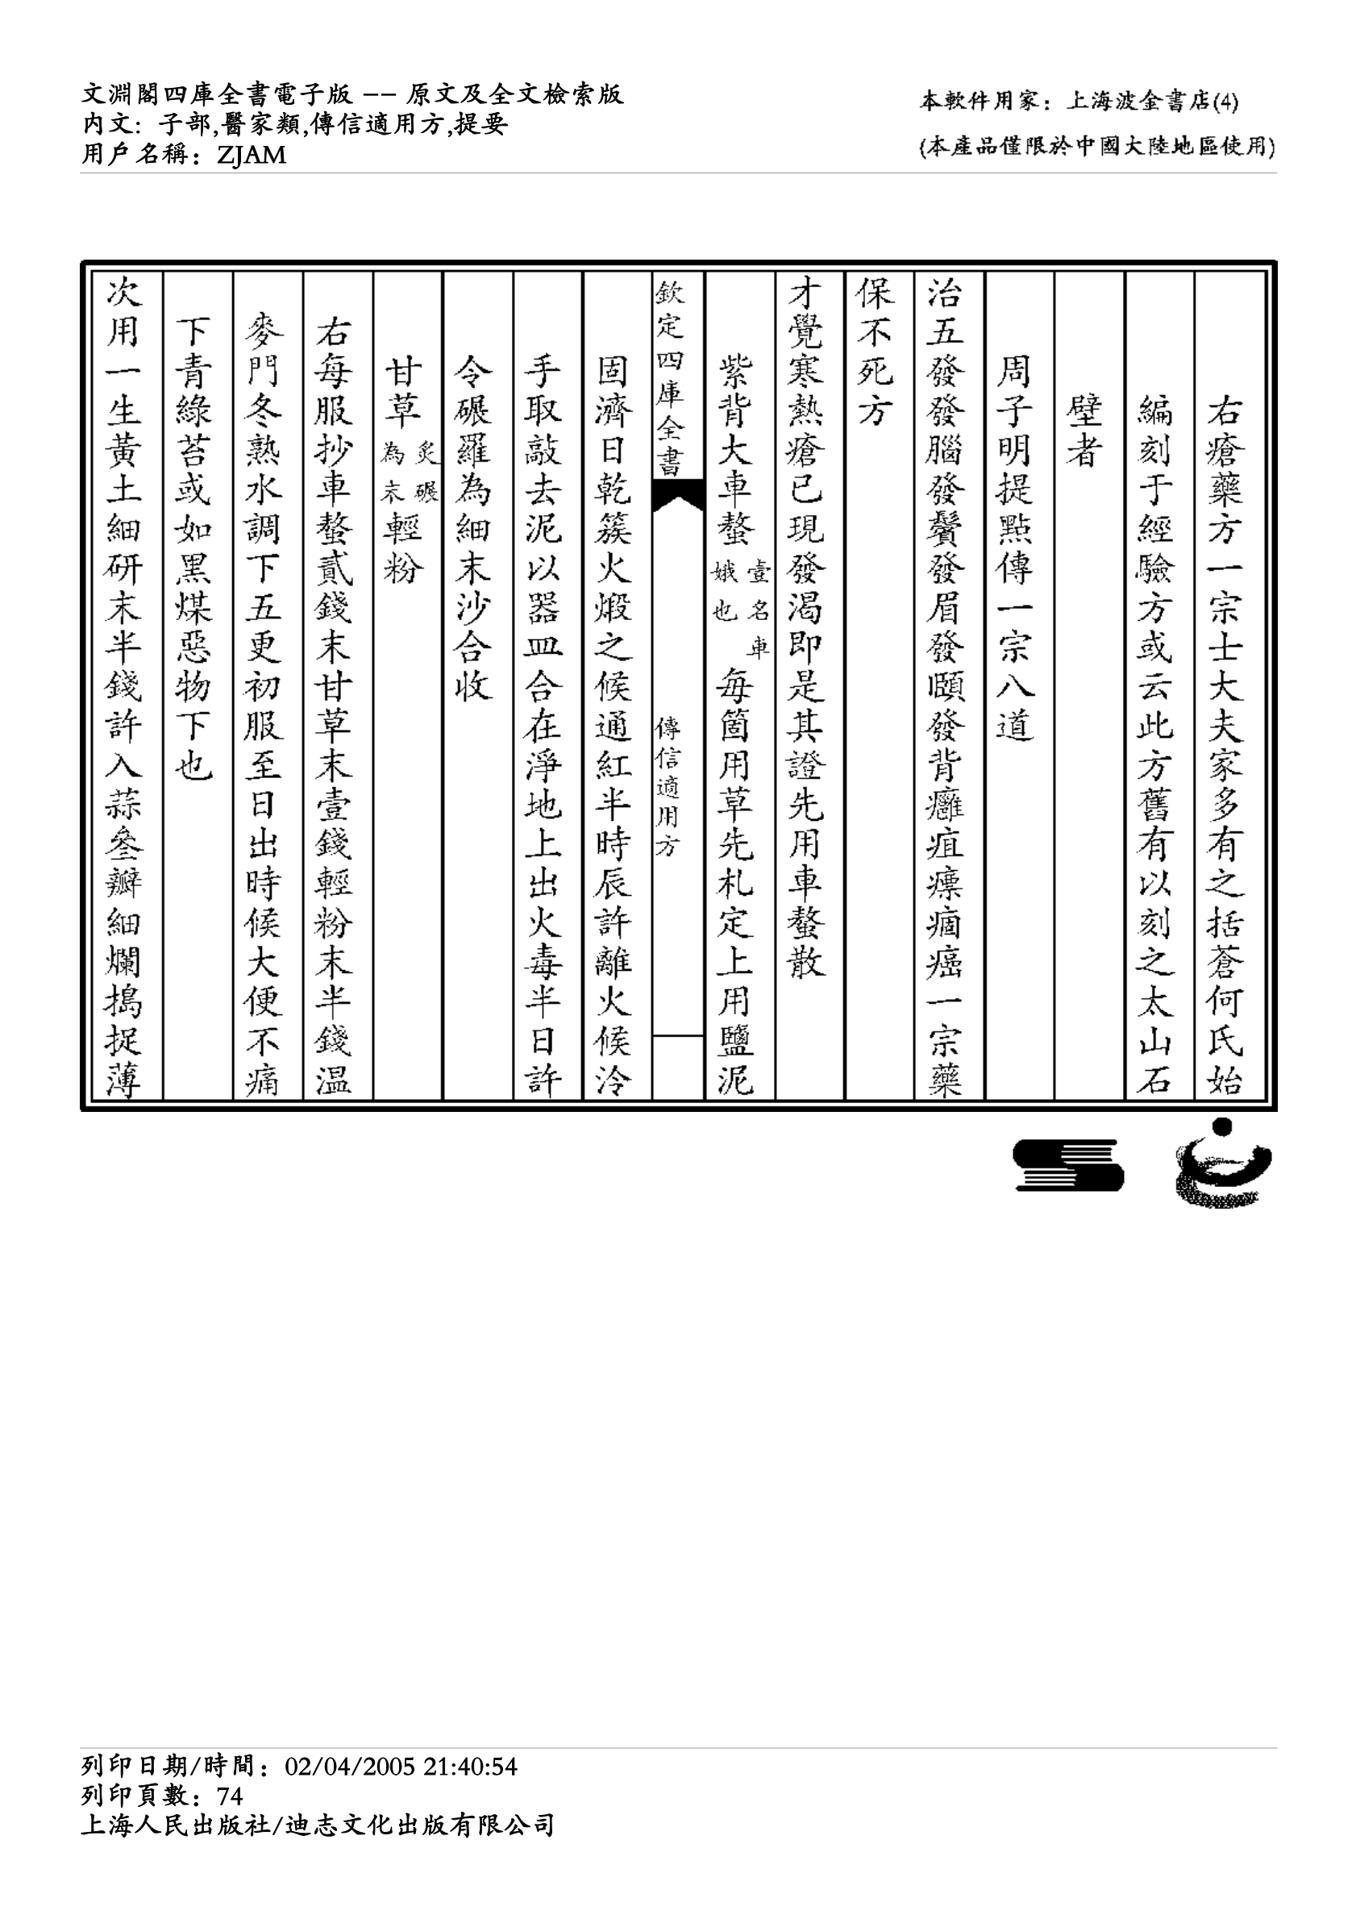 文淵閣四庫全書電子版 -- 原文及全文檢索版
內文: 子部,醫家類,傳信適用方,提要
用戶名稱: ZJAM
本軟件用家: 上海波金書店(4)
(本產品僅限於中國大陸地區使用)
右瘡藥方一宗士大夫家多有之括蒼何氏始
編刻于經驗方或云此方舊有以刻之太山石
壁者
周子明提點傳一宗八道
治五發發腦發鬢發眉發頤發背癰疽瘭痼癌一宗藥
保不死方
才覺寒熱瘡已現發渴即是其證先用車螯散
紫背大車螯壹名車娥也每箇用草先札定上用鹽泥
欽定四庫全書
傳信適用方
固濟日乾簇火煅之候通紅半時辰許離火候冷
手取敲去泥以器皿合在淨地上出火毒半日許
令碾羅為細末沙合收
甘草炙碾為末輕粉
右每服抄車螯貳錢末甘草末壹錢輕粉末半錢温
麥門冬熟水調下五更初服至日出時候大便不痛
下青綠苔或如黑煤惡物下也
次用一生黃土細研末半錢許入蒜叄瓣細爛搗捉薄
列印日期/時間: 02/04/2005 21:40:54
列印頁數: 74
上海人民出版社/迪志文化出版有限公司